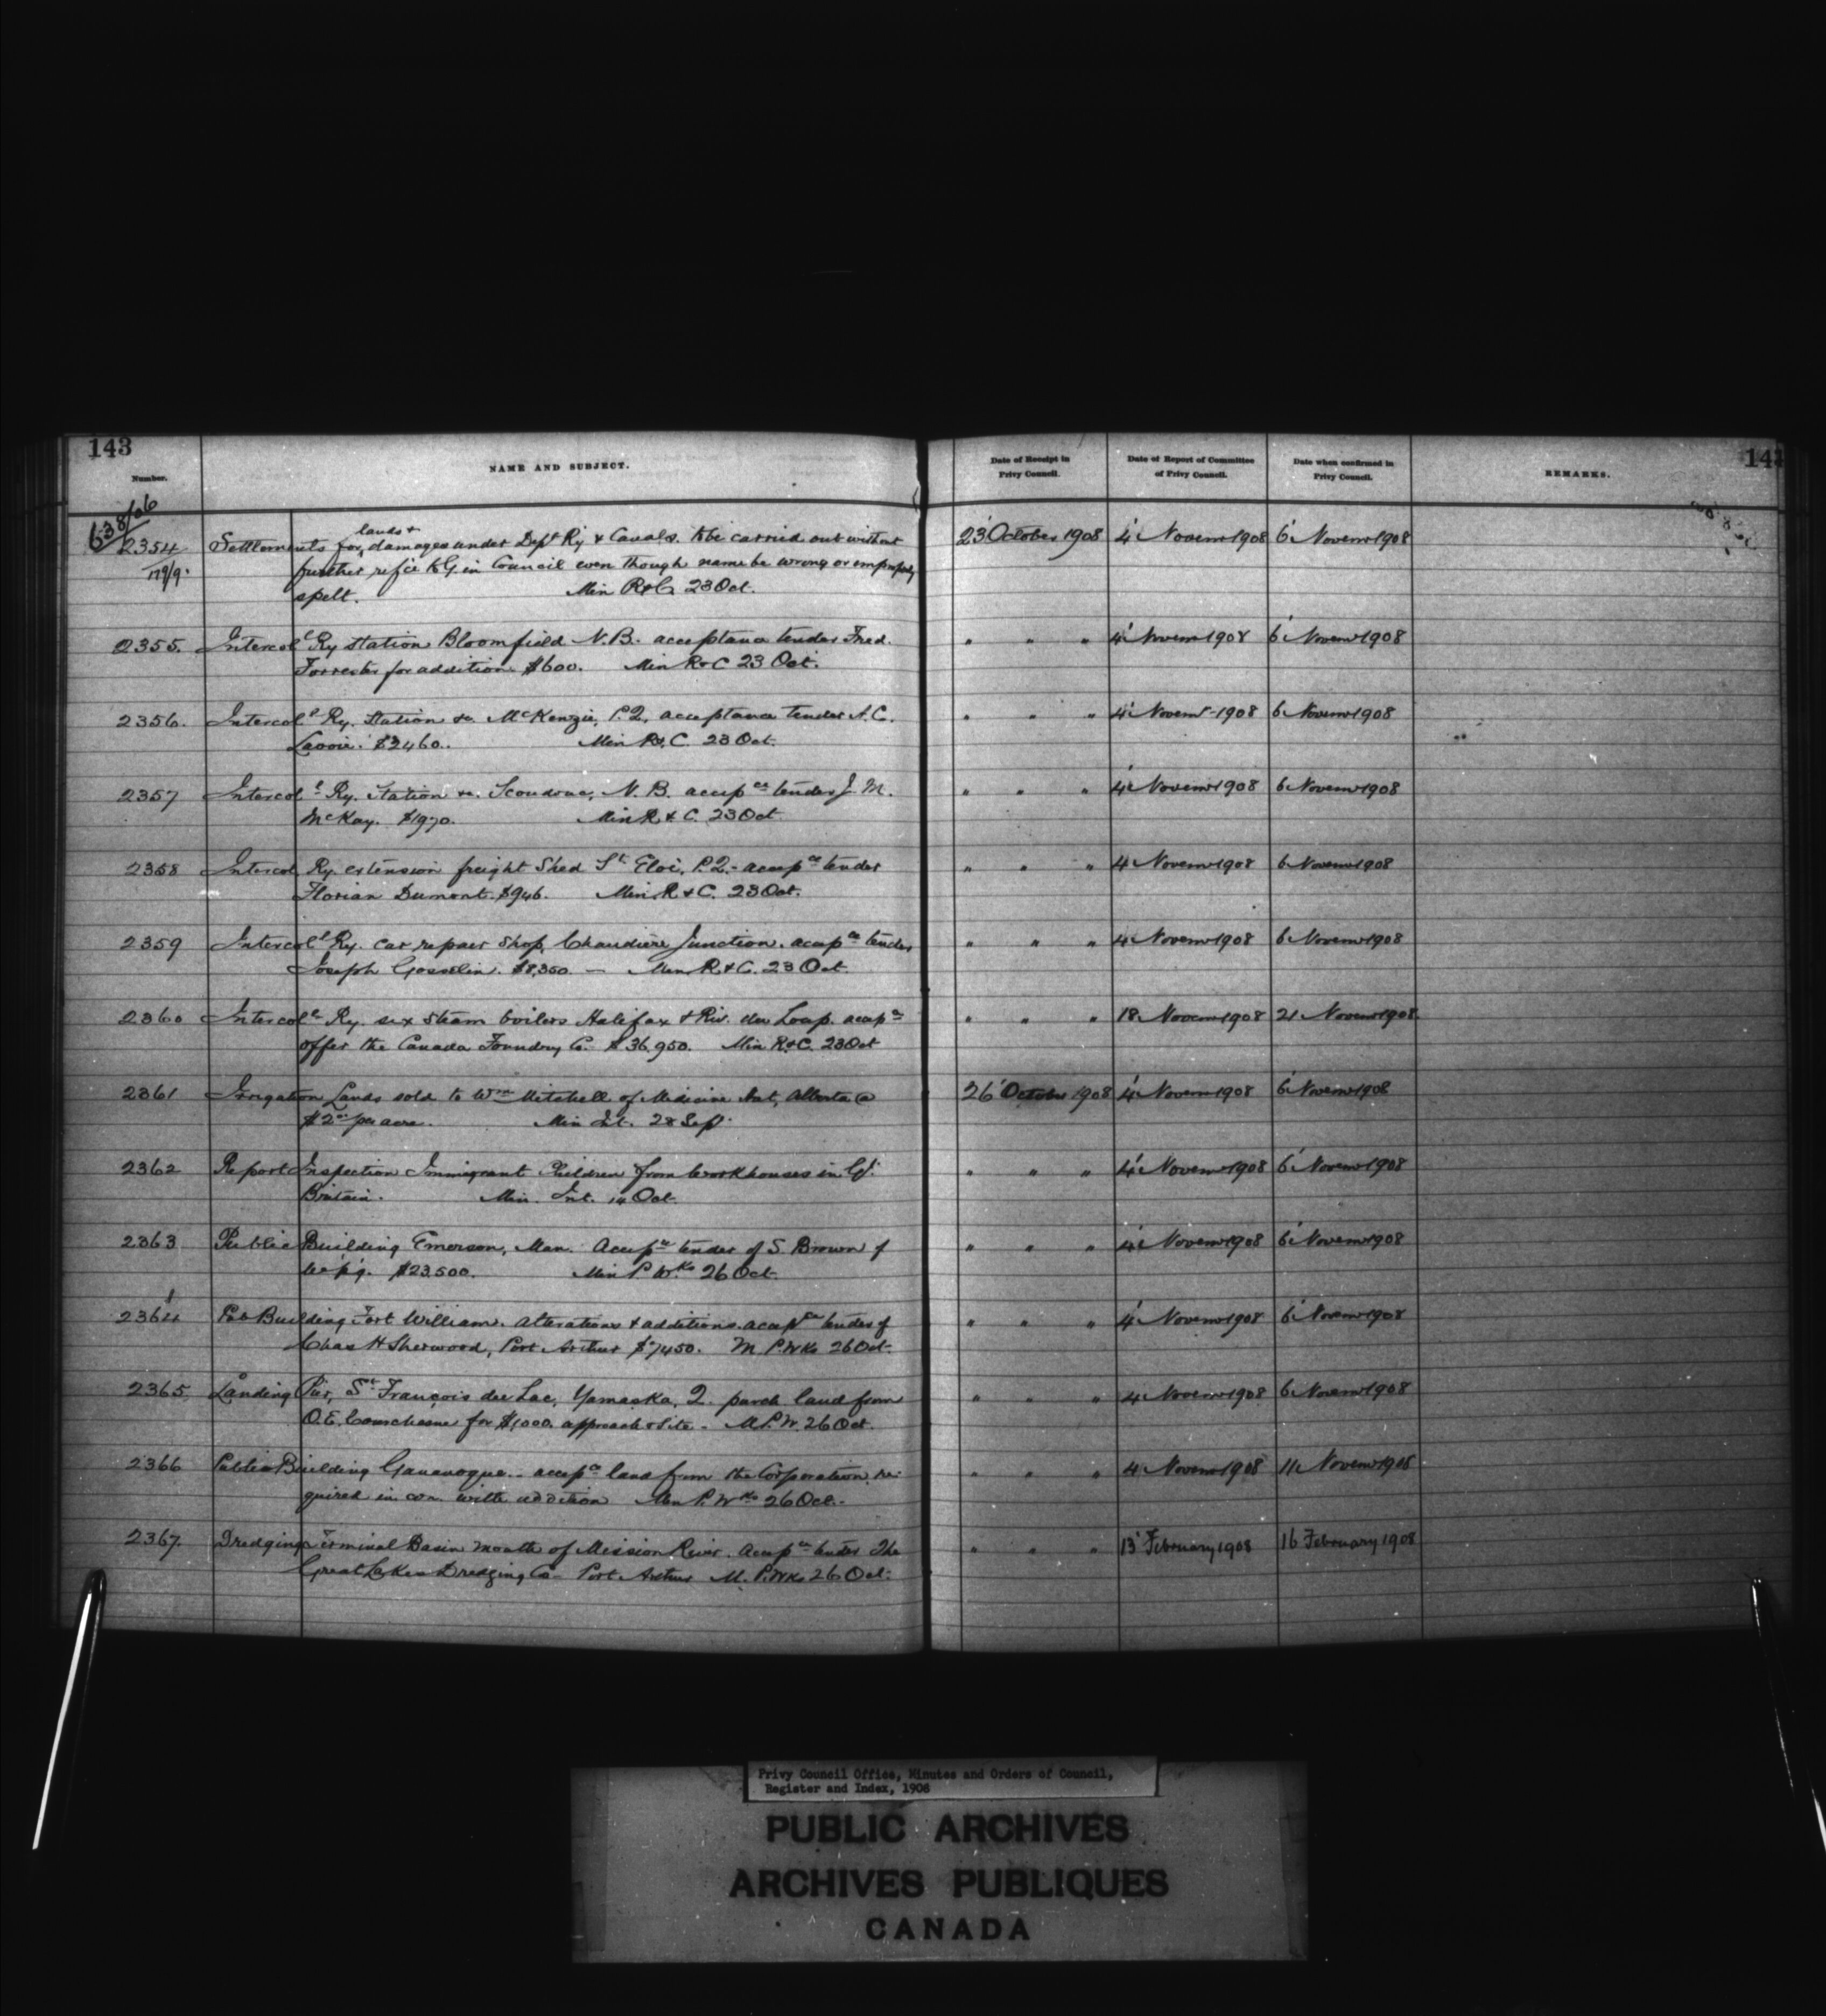 143
143
Number.
NAME AND SUBJECT.
Date of Receipt in
Privy Council.
Date of Report of Committee
of Privy Council.
Date when confirmed in
Privy Council.
REMARKS.
638/06
lands &
2354 Settlements for damages under Dept Ry & Canals. to be carried out without 23 October 1908 4 Novemr 1908 6 Novemr 1908
further refce to G. in Council even though name be wrong or improperly
spelt. Min R&C 23 Oct.
2355. Intercoll Ry station Bloomfield N.B. acceptance tender Fred. " " " 4 Novemr 1908 6 Novemr 1908
Forrester for addition $600. Min R&C 23 Oct.
2356. Intercoll Ry. Station &c. McKenzie, P.Q. acceptance tender A.C. " " " 4 Novemr 1908 6 Novemr 1908
Lavoie. $2460. Min R&C. 23 Oct.
2357 Intercoll Ry. Station &c. Scoudouc, N.B. accepce tender J.M. " " " 4 Novemr 1908 6 Novemr 1908
McKay. $1970. Min R & C. 23 Oct
2358 Intercol Ry. extension freight Shed St Eloi, P.Q. accepce tender " " " 4 Novemr 1908 6 Novemr 1908
Florian Dumont. $946. Min R & C. 23 Oct.
2359 Intercoll Ry. car repair shop, Chaudiere Junction. accepce tender " " " 4 Novemr 1908 6 Novemr 1908
Joseph Gosselin. $8,350. — Min R & C. 23 Oct
2360 Intercoll Ry. six steam boilers Halifax & Riv. du Loup. accepce " " " 18 Novemr 1908 21 Novemr 1908
offer the Canada Foundry Co. $36,950. Min R&C. 23 Oct
2361 Irrigation Lands sold to Wm Mitchell of Medicine Hat, Alberta @ 26 October 1908 4 Novemr 1908 6 Novemr 1908
$2.00 per acre. Min Int. 28 Sep.
2362 Report Inspection Immigrant Children from Workhouses in Gt. " " " 4 Novemr 1908 6 Novemr 1908
Britain. Min. Int. 14 Oct.
2363 Public Building Emerson, Man. Accepce tender of S. Brown of " " " 4 Novemr 1908 6 Novemr 1908
W'p'g. $23,500. Min P. Wks 26 Oct.
2364 Pub Building Fort William. alterations & additions. accepce tender of " " " 4 Novemr 1908 6 Novemr 1908
Chas H Sherwood, Port Arthur $7450. M P. Wks 26 Oct.
2365 Landing Pier, St François du Lac, Yamaska, Q. purch land from " " " 4 Novemr 1908 6 Novemr 1908
O.E. Courchesne for $1,000. approach & site - M. P.W. 26 Oct.
2366 Public Building Gananoque - accepce land from the Corporation re- " " " 4 Novemr 1908 11 Novemr 1908
quired in con. with addition Min P. Wks 26 Oct.
2367. Dredging Terminal Basin mouth of Mission River. accepce tender The " " " 13 February 1908 16 February 1908
Great Lakes Dredging Co - Port Arthur M. P. Wks 26 Oct.
Privy Council Office, Minutes and Orders of Council,
Register and Index, 1908
PUBLIC ARCHIVES
ARCHIVES PUBLIQUES
CANADA